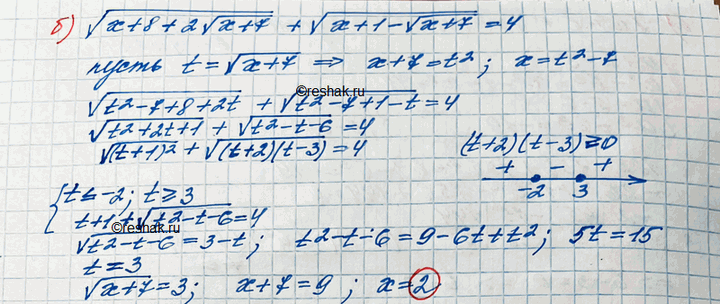 б) √(x+8+2√(x+7)) + √(x+1-√(x+7)) = 4
пусть t = √(x+7) ⇒ x+7 = t²; x = t²-7
©reshak.ru
√(t²-7+8+2t) + √(t²-7+1-t) = 4
√(t²+2t+1) + √(t²-t-6) = 4
√((t+1)²) + √((t+2)(t-3)) = 4
(t+2)(t-3) ≥ 0
+ - +
-2 3
{ t ≤ -2; t ≥ 3
t+1+√(t²-t-6) = 4
√(t²-t-6) = 3-t; t²-t-6 = 9-6t+t²; 5t = 15
t = 3
√(x+7) = 3; x+7 = 9; x = 2